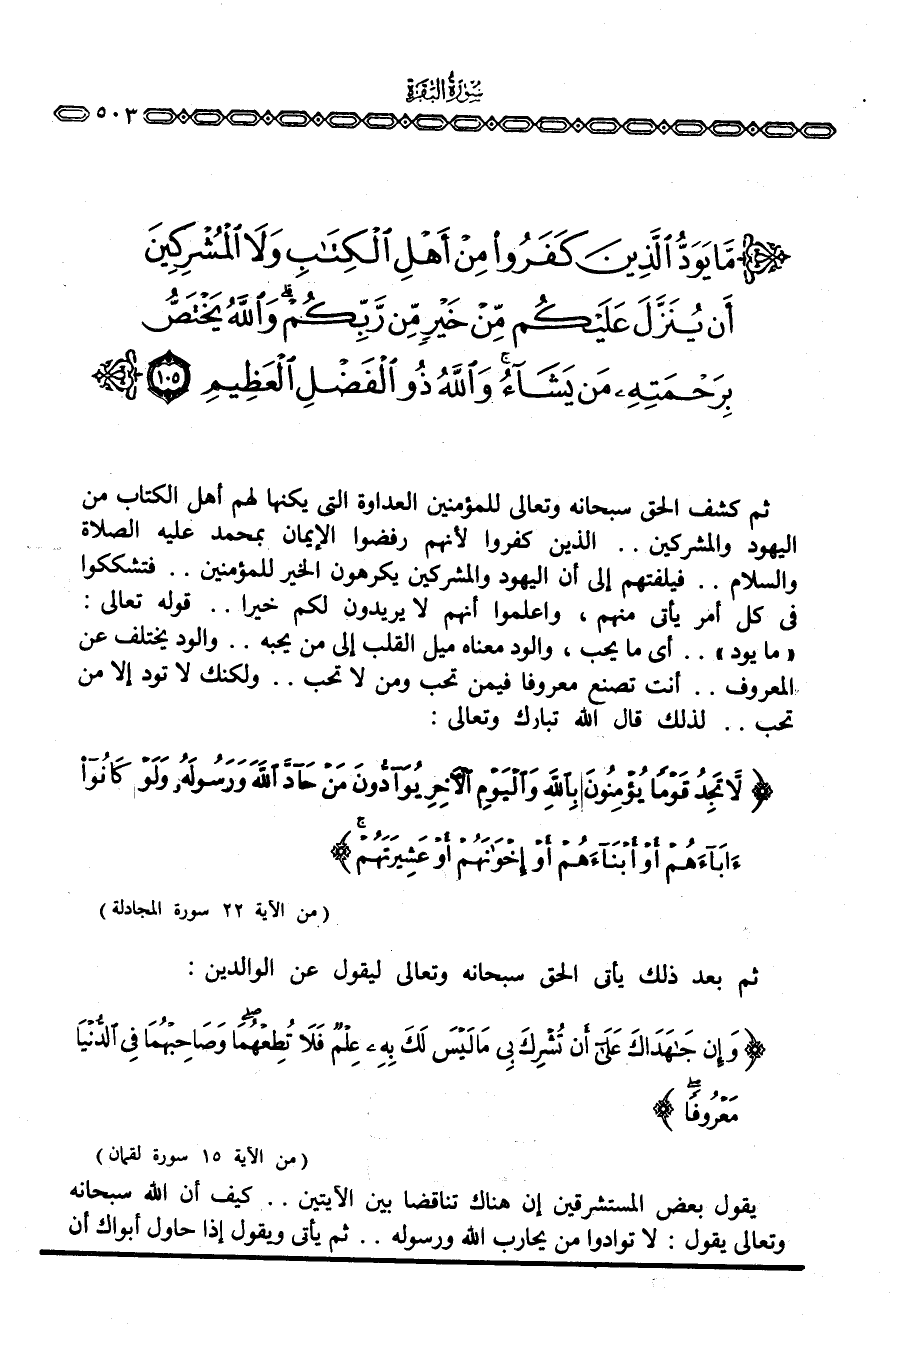 سُورَةُ الْبَقَرَةِ
٥٠٣
مَّا يَوَدُّ ٱلَّذِينَ كَفَرُوا۟ مِنْ أَهْلِ ٱلْكِتَٰبِ وَلَا ٱلْمُشْرِكِينَ
أَن يُنَزَّلَ عَلَيْكُم مِّنْ خَيْرٍ مِّن رَّبِّكُمْ ۗ وَٱللَّهُ يَخْتَصُّ
بِرَحْمَتِهِۦ مَن يَشَآءُ ۚ وَٱللَّهُ ذُو ٱلْفَضْلِ ٱلْعَظِيمِ ١٠٥
ثم كشف الحق سبحانه وتعالى للمؤمنين العداوة التى يكنها لهم أهل الكتاب من
اليهود والمشركين .. الذين كفروا لأنهم رفضوا الإيمان بمحمد عليه الصلاة
والسلام .. فيلفتهم إلى أن اليهود والمشركين يكرهون الخير للمؤمنين .. فتشككوا
فى كل أمر يأتى منهم ، واعلموا أنهم لا يريدون لكم خيرا .. قوله تعالى :
« ما يود » .. أى ما يحب ، والود معناه ميل القلب إلى من يحبه .. والود يختلف عن
المعروف .. أنت تصنع معروفا فيمن تحب ومن لا تحب .. ولكنك لا تود إلا من
تحب .. لذلك قال الله تبارك وتعالى :
﴿ لَّا تَجِدُ قَوْمًا يُؤْمِنُونَ بِٱللَّهِ وَٱلْيَوْمِ ٱلْءَاخِرِ يُوَآدُّونَ مَنْ حَآدَّ ٱللَّهَ وَرَسُولَهُۥ وَلَوْ كَانُوٓا۟
ءَابَآءَهُمْ أَوْ أَبْنَآءَهُمْ أَوْ إِخْوَٰنَهُمْ أَوْ عَشِيرَتَهُمْ ۚ ﴾
( من الآية ٢٢ سورة المجادلة )
ثم بعد ذلك يأتى الحق سبحانه وتعالى ليقول عن الوالدين :
﴿ وَإِن جَٰهَدَاكَ عَلَىٰٓ أَن تُشْرِكَ بِى مَا لَيْسَ لَكَ بِهِۦ عِلْمٌ فَلَا تُطِعْهُمَا ۖ وَصَاحِبْهُمَا فِى ٱلدُّنْيَا
مَعْرُوفًا ۖ ﴾
( من الآية ١٥ سورة لقمان )
يقول بعض المستشرقين إن هناك تناقضا بين الآيتين .. كيف أن الله سبحانه
وتعالى يقول : لا توادوا من يحارب الله ورسوله .. ثم يأتى ويقول إذا حاول أبواك أن